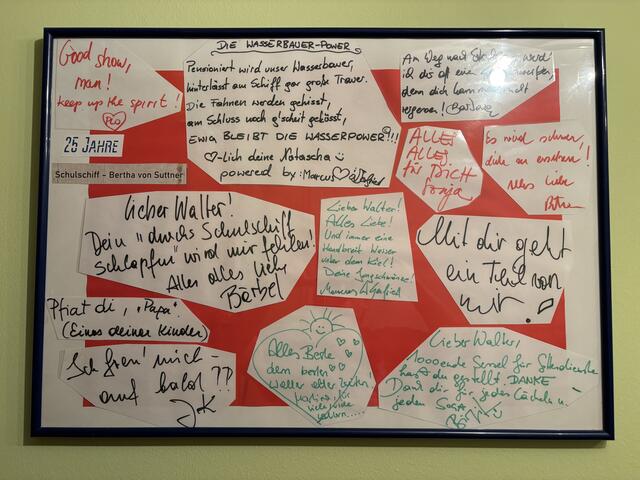 Good show,
man!
keep up the spirit!
PLO
DIE WASSERBAUER-POWER
Pensioniert wird unser Wasserbauer,
hinterlässt am Schiff gar große Trauer.
Die Fahnen werden gehisst,
am Schluss noch g'scheit geküsst,
EWIG BLEIBT DIE WASSERPOWER!!!
♡-lich deine Natascha
powered by: Marcus
Am Weg nach
ich dis auf eine
denn dich kann
regnen! Barbara
25 JAHRE
Schulschiff – Bertha von Suttner
ALLES
ALLES
für DICH
Sonja
Es wird schwer,
dich zu ersetzen!
Alles Liebe
Lieber Walter!
Dein „durchs Schulschiff
Schlapfen" wird mir fehlen!
Alles alles Liebe
Bärbel
Lieber Walter!
Alles Liebe!
Und immer eine
Handbreit Wasser
unter dem Kiel!
Deine
Marcus & Manfred
Mit dir geht
ein Teil von
mir.
Pfiat di, „Papa".
(Eines deiner Kinder)
Ich freu' mich –
auf bald??
JK
Alles Beste
dem besten
Walter aller Zeiten!
Martina, für
viele
Lieber Walter,
1000ende Sessel für
hast du gestellt DANKE
Dank dir für jedes Lächeln u.
jeden